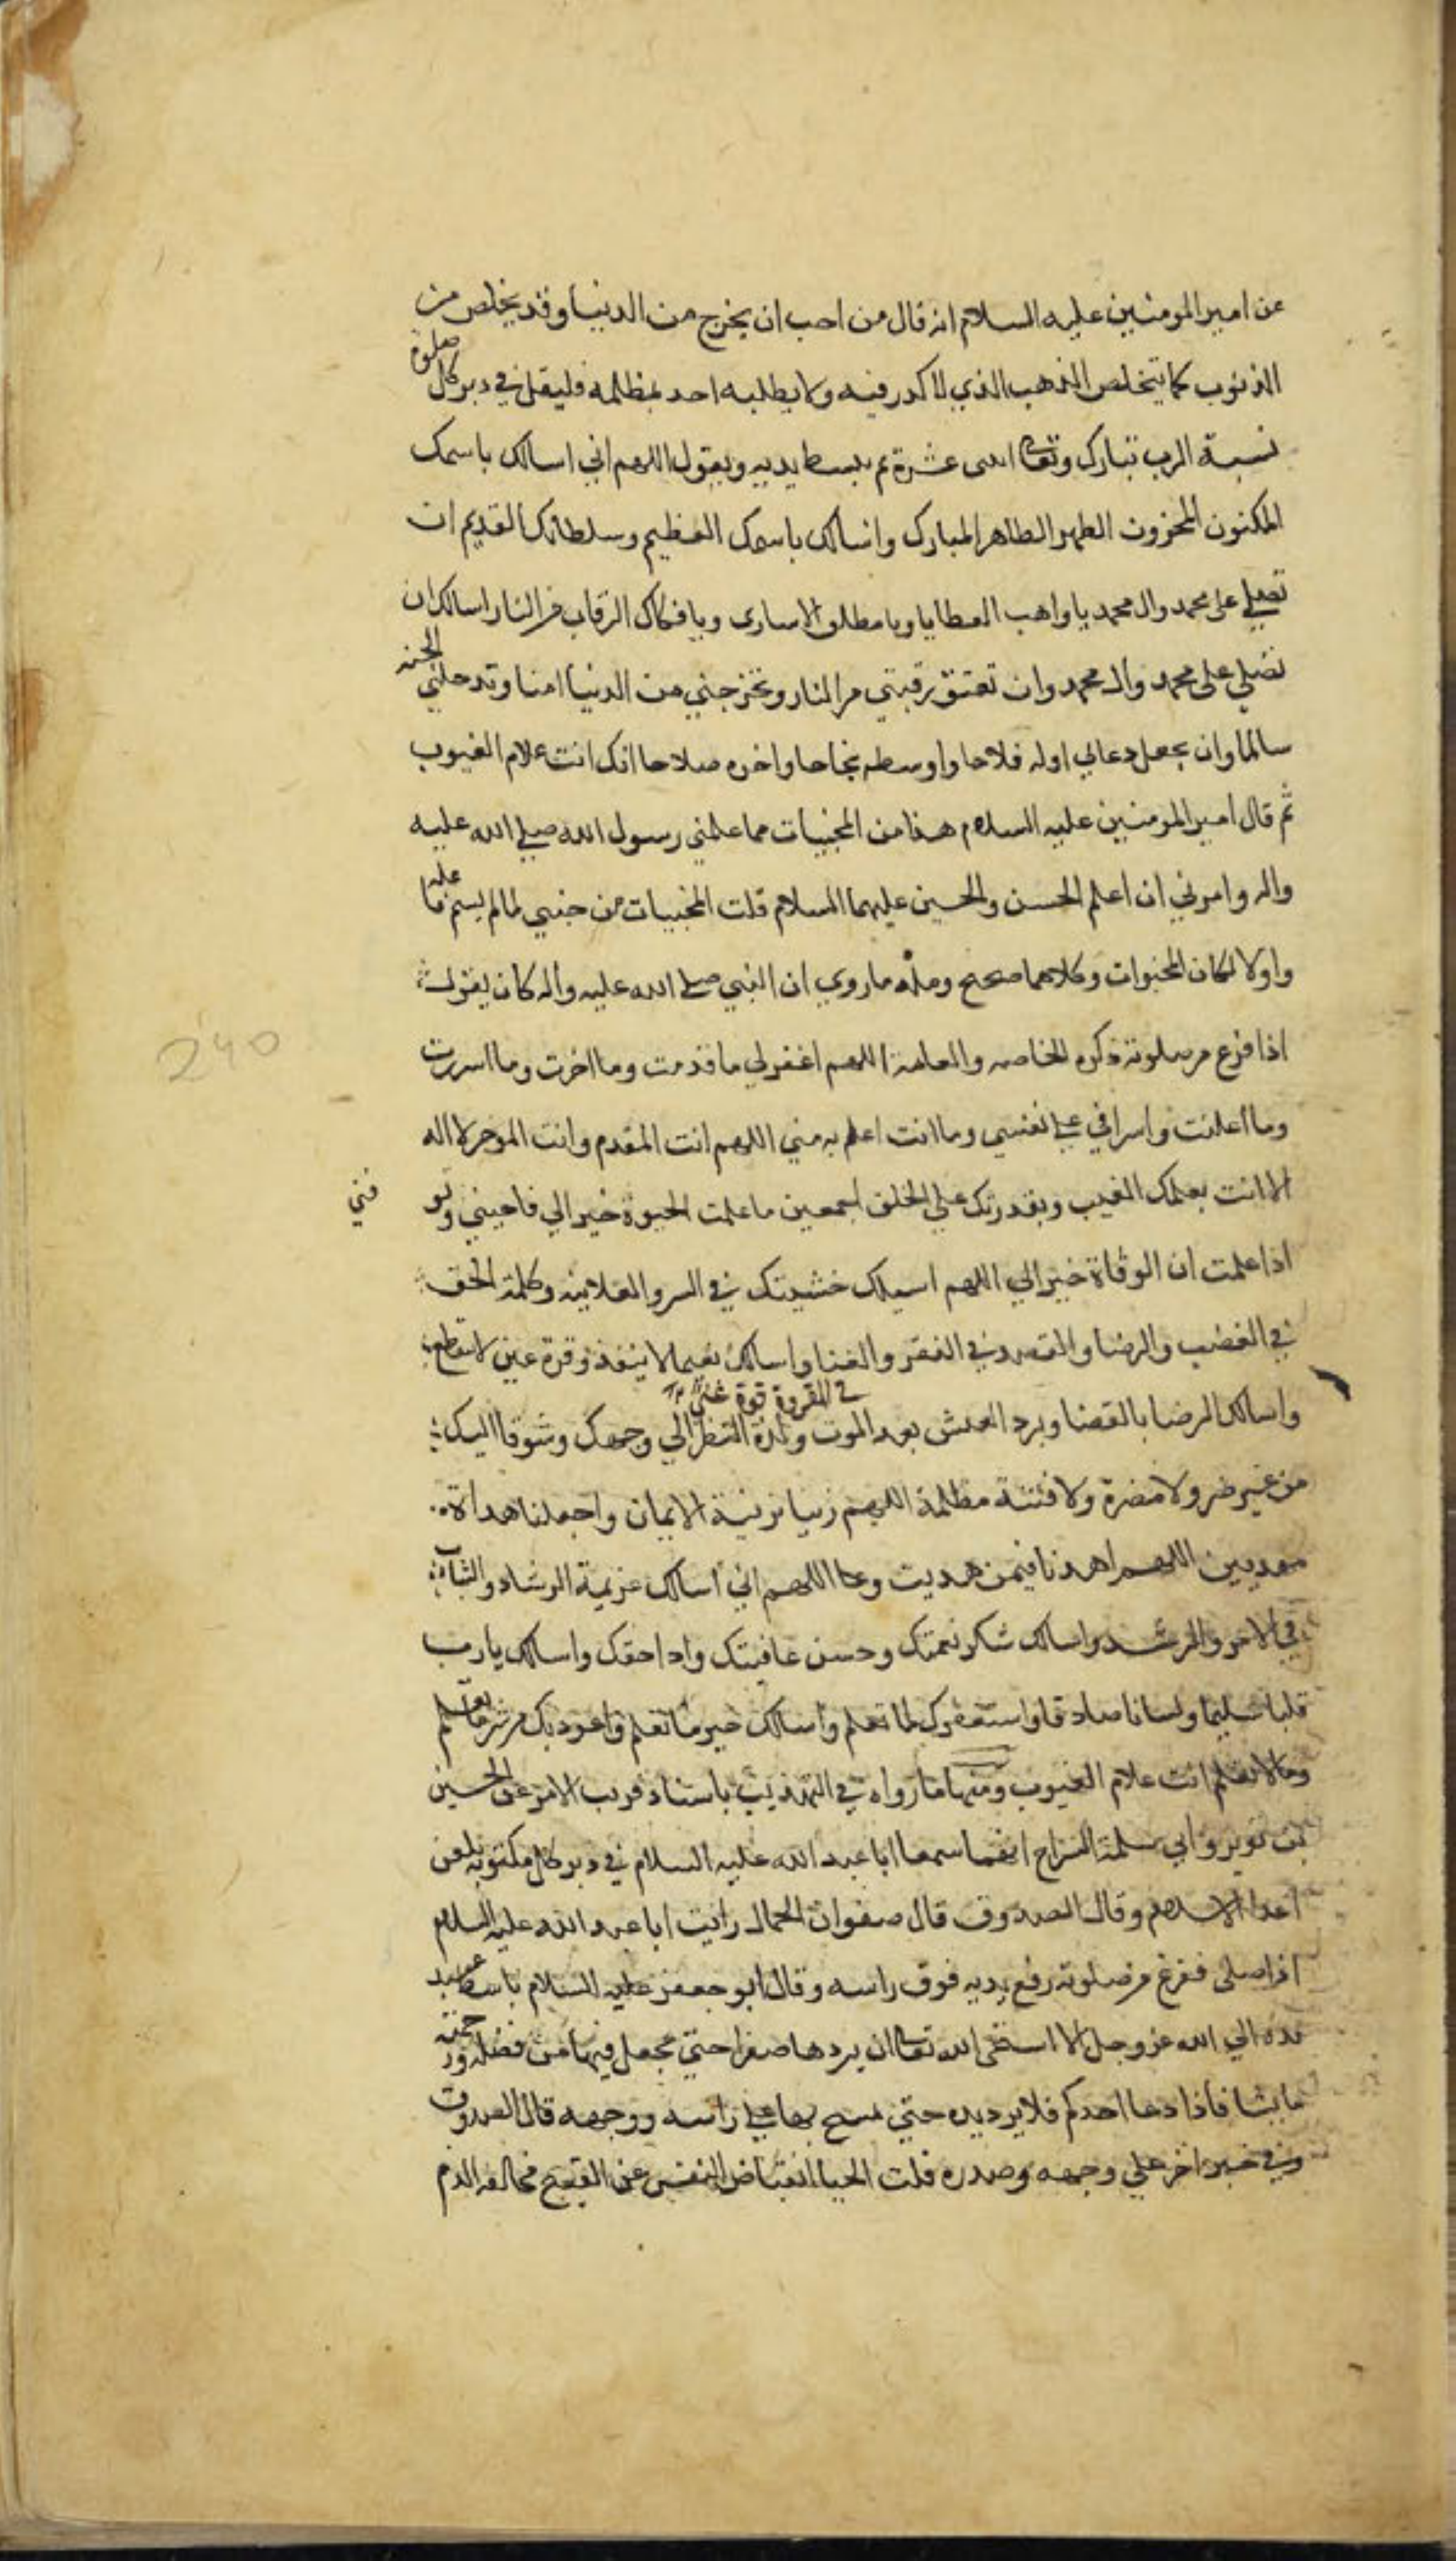 عن امير المومنين عليه السلام انه قال من احب ان يخرج من الدنيا وقد يخلص من
الذنوب كما يتخلص الذهب الذي لا كدر فيه ولا يطلبه احد بمظلمه فليقل في دبر كل صلوة
نسبة الرب تبارك وتعا اثنى عشرة ثم يبسط يديه ويقول اللهم اني اسالك باسمك
المكنون المخزون الطهر الطاهر المبارك واسالك باسمك العظيم وسلطانك القديم ان
تصلي على محمد وال محمد يا واهب العطايا ويا مطلق الاسارى ويا فكاك الرقاب من النار اسالك ان
تصلي على محمد وال محمد وان تعتق رقبتي من النار وتخرجني من الدنيا امنا وتدخلني الجنه
سالما وان تجعل دعائي اوله فلاحا واوسطه نجاحا واخره صلاحا انك انت علام الغيوب
ثم قال امير المومنين عليه السلام هذا من المخبيات مما علمني رسول الله صلي الله عليه
واله وامرني ان اعلم الحسن والحسين عليهما السلام قلت المخبيات من خبي لما لم يسم فاعله
واولا لكان المخبوات وكلاهما صحيح ومنه ما روي ان النبي صلي الله عليه واله كان يقول
اذا فرغ من صلوته ذكره الخاصه والعامة اللهم اغفر لي ما قدمت وما اخرت وما اسررت
وما اعلنت واسرافي علي نفسي وما انت اعلم به مني اللهم انت المقدم وانت الموخر لا اله
الا انت بعلمك الغيب وبقدرتك علي الخلق اجمعين ما علمت الحيوة خيرا لي فاحيني وتوفني
اذا علمت ان الوفاة خيرا لي اللهم اسيلك خشيتك في السر والعلانيه وكلمة الحق
في الغضب والرضا والقصد في الفقر والغنا واسالك نعيما لا ينفذ وقرة عين لا ينقطع
في المقروة قوة
واسالك الرضا بالقضا وبرد العيش بعد الموت ولذة النظر الي وجهك وشوقا اليك
من غير ضر ولا مضرة ولا فتنة مظلمة اللهم زينا بزينة الايمان واجعلنا هداة
مهديين اللهم اهدنا فيمن هديت وعا اللهم اني اسالك عزيمة الرشاد والثبات
في الامر والرشد واسالك شكر نعمتك وحسن عافيتك واداحقك واسالك يا رب
قلبا سليما ولسانا صادقا واستغفرك لما تعلم واسالك خير ما تعلم واعوذ بك من شر ما تعلم
وما لا نعلم انت علام الغيوب ومنها ما رواه في التهذيب باسناد قريب الامر عن الحسين
بن ثوير وابي سلمة السراج انهما سمعا ابا عبد الله عليه السلام في دبر كل مكتوبه يلعن
اعدا الاسلام وقال الصدوق قال صفوان الجمال رايت ابا عبد الله عليه السلام
اذا صلى ففرغ من صلوته رفع يديه فوق راسه وقال ابو جعفر عليه السلام ما بسط عبد
يده الي الله عز وجل الا استحى الله تعا ان يردها صفرا حتي يجعل فيها من فضله ورحمته
ما يشا فاذا دعا احدكم فلا يرد يده حتي يمسح بها علي راسه ووجهه قال الصدوق
وفي خبر اخر علي وجهه وصدره قلت الحيا انقباض النفس عن القبيح مخالفه الذم
240